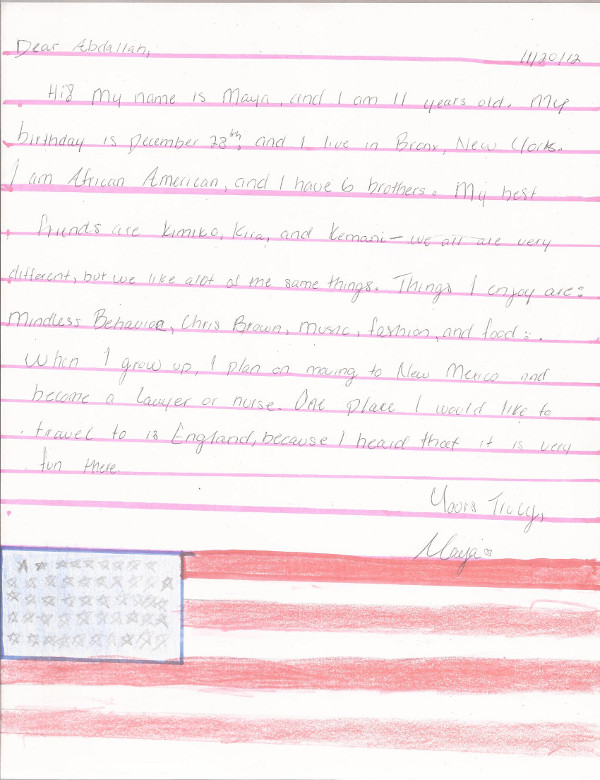 Dear Abdallah,
11/20/12
Hi! My name is Maya, and I am 11 years old. My
birthday is December 28th, and I live in Bronx, New York.
I am African American, and I have 6 brothers. My best
friends are Kimiko, Kira, and Kemani - we all are very
different, but we like alot of the same things. Things I enjoy are:
Mindless Behavior, Chris Brown, music, fashion, and food :.
When I grow up, I plan on moving to New Mexico and
become a lawyer or nurse. One place I would like to
travel to is England, because I heard that it is very
fun there.
Yours Truly,
Maya